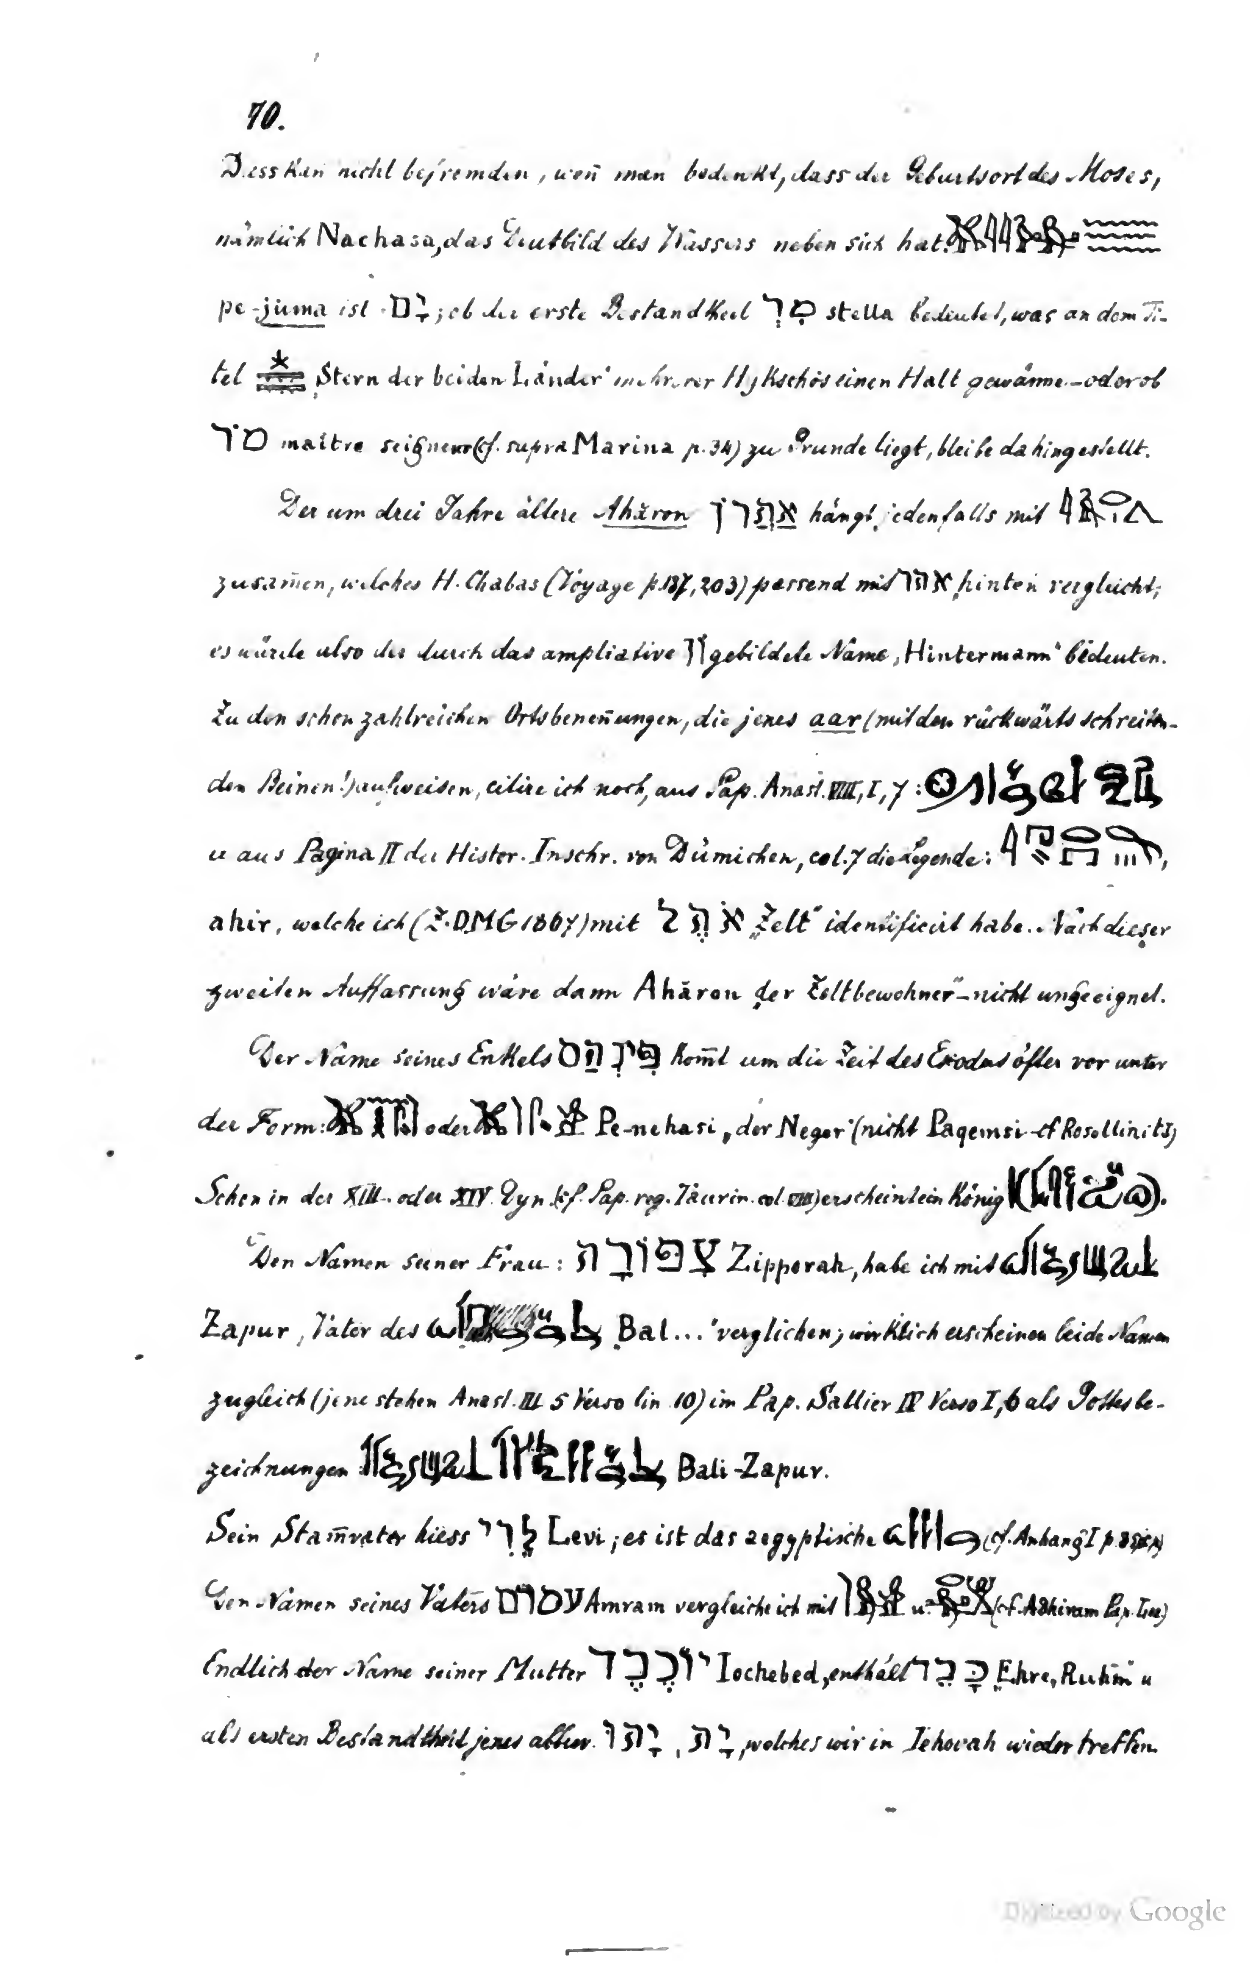 70.
Diess kan̄ nicht befremden, wen̄ man bedenkt, dass der Geburtsort des Moses,
nämlich Nachasa, das Deutbild des Wassers neben sich hat.
pe-juma ist יָם; ob der erste Bestandtheil מָר stella bedeutet, was an dem Ti-
tel „Stern der beiden Länder" mehrerer Hykschôs einen Halt gewänne – oder ob
מר maître seigneur (cf. supra Marina p. 34) zu Grunde liegt, bleibe dahingestellt.
Der um drei Jahre ältere Ahăron אַהֲרֹן hängt jedenfalls mit
zusam̄en, welches H. Chabas (Voyage p. 137, 203) passend mit אחר hinten vergleicht;
es würde also der durch das ampliative וֹן gebildete Name „Hintermann" bedeuten.
Zu den schon zahlreichen Ortsbenen̄ungen, die jenes aar (mit den rückwärts schreiten-
den Beinen!) aufweisen, citire ich noch, aus Pap. Anast. VIII, I, 7:
u aus Pagina II der Histor. Inschr. von Dümichen, col. 7 die Legende: ,
ahir, welche ich (Z. DMG 1867) mit אֹהֶל „Zelt" identificirt habe. Nach dieser
zweiten Auffassung wäre dann Ahăron „der Zeltbewohner" – nicht ungeeignet.
Der Name seines Enkels פִּינְחָס kom̄t um die Zeit des Exodus öfter vor unter
der Form: oder Pe-nehasi „der Neger" (nicht Paqemsi cf Rosellini
Schon in der XIII. oder XIV. Dyn. (cf. Pap. reg. Taurin. col. VIII) erscheint ein König .
Den Namen seiner Frau: צִפּוֹרָה Zipporah, habe ich mit
Zapur, Vater des Bal..." verglichen; wirklich erscheinen beide Namen
zugleich (jene stehen Anast. III 5 Verso lin 10) im Pap. Sallier IV Verso I, 6 als Gottesbe-
zeichnungen Bali-Zapur.
Sein Stam̄vater hiess לֵוִי Levi; es ist das aegyptische (cf. Anhang I p.
Den Namen seines Vaters עמרם Amram vergleiche ich mit u. (cf. Adhiram Pap.
Endlich der Name seiner Mutter יוֹכֶבֶד Iochebed, enthält כָּבֵד „Ehre, Ruhm" u
als ersten Bestandtheil jenes יָהוּ, יָהּ, welches wir in Jehovah wieder treffen.
Digitized by Google